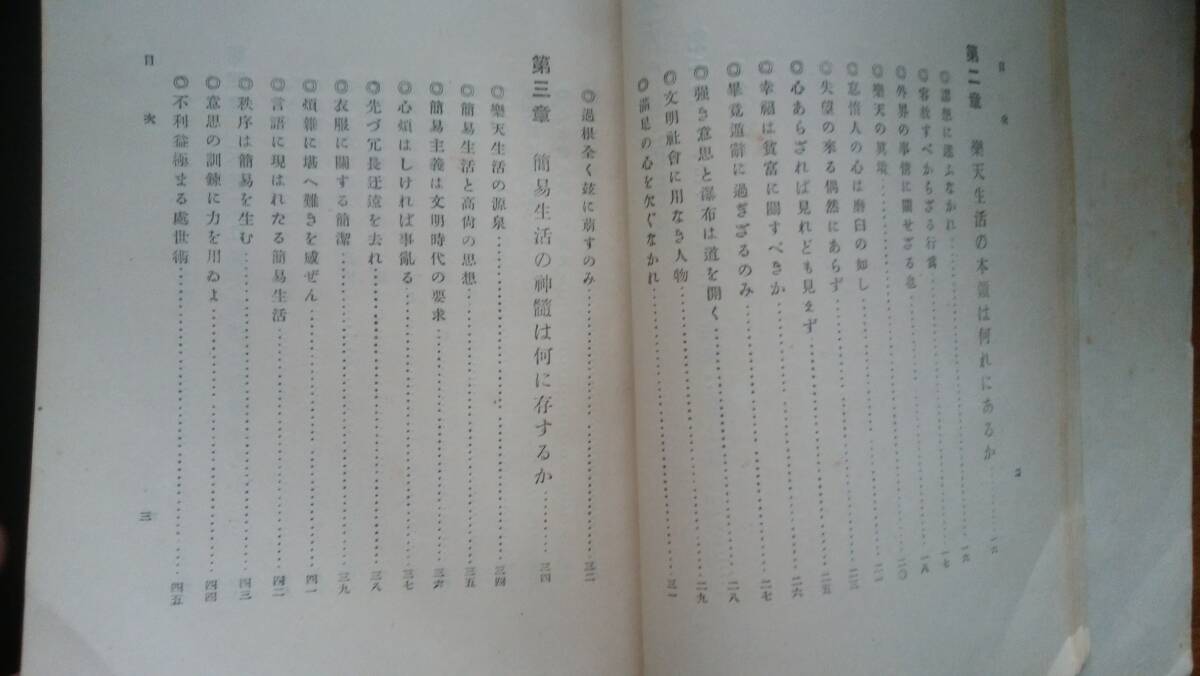 目次
二
第二章 樂天生活の本領は何れにあるか………一六
◎謬想に迷ふなかれ………一六
◎容赦すべからざる行爲………一七
◎外界の事情に關せざる也………一八
◎樂天の異境………二〇
◎怠惰人の心は磨臼の如し………二一
◎失望の來る偶然にあらず………二三
◎心あらざれば見れども見えず………二五
◎幸福は貧富に關すべきか………二六
◎畢竟遁辭に過ぎざるのみ………二七
◎强き意思と瀑布は道を開く………二八
◎文明社會に用なき人物………二九
◎滿足の心を欠ぐなかれ………三一
◎過根全く玆に萠すのみ………三二
第三章 簡易生活の神髓は何に存するか………三四
◎樂天生活の源泉………三四
◎簡易生活と高尙の思想………三五
◎簡易主義は文明時代の要求………三六
◎心煩はしければ事亂る………三七
◎先づ冗長迂遠を去れ………三八
◎衣服に關する簡潔………三九
◎煩雜に堪へ難きを感ぜん………四一
◎言語に現はれたる簡易生活………四二
◎秩序は簡易を生む………四三
◎意思の訓鍊に力を用ゐよ………四四
◎不利益極まる處世術………四五
目次
三